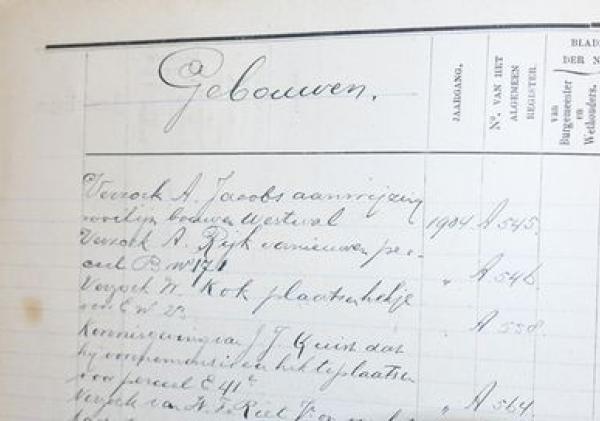 Gebouwen.
JAARGANG.
No. VAN HET
ALGEMEEN
REGISTER.
BLAD
DER N
van
Burgemeester
en
Wethouders.
Verzoek A. Jacobs aanwijzing
rooilijn bouwen Westwal 1904 A 545.
Verzoek A. Rijk vernieuwen per-
ceel B no 171 " A 546.
Verzoek W. Kok plaatsen hekje
voor C no " A 558.
Kennisgeving van J. J. Kuist dat
hij voornemens is een hek te plaatsen
voor perceel E 41c " A 564.
Verzoek van W. F. Riet